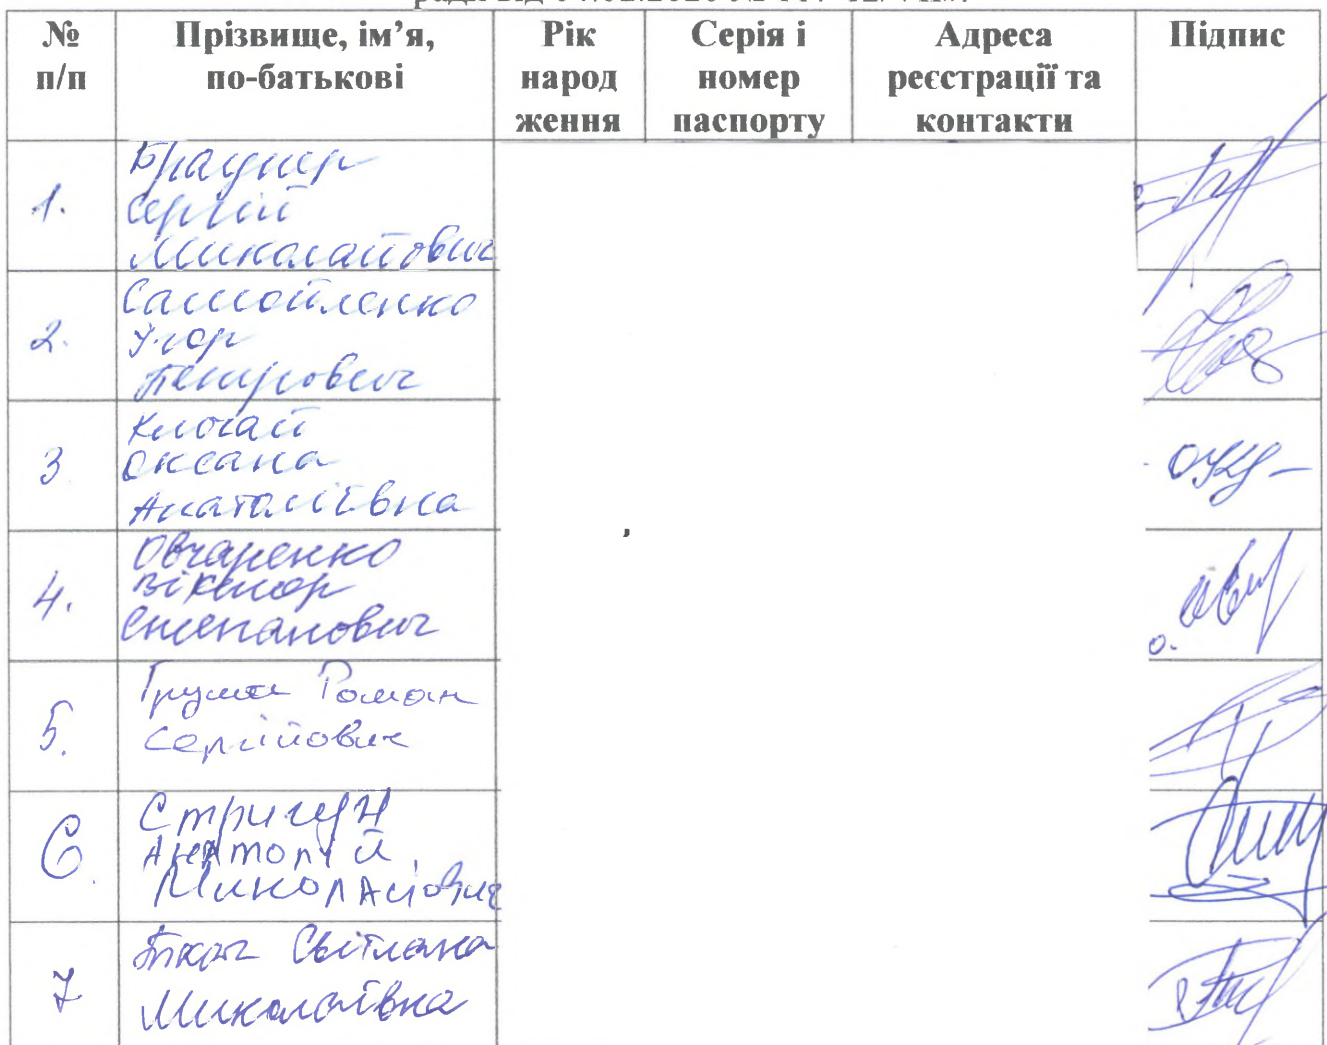 № п/п Прізвище, ім’я, по-батькові Рік народ ження Серія і номер паспорту Адреса реєстрації та контакти Підпис
1. Браунер
Сергій
Миколайович
2. Самойленко
Ігор
Петрович
3 Клочай
Оксана
Анатоліївна
4. Овчаренко
Віктор
Степанович
5. Груша Роман
Сергійович
6. Стригун
Анатолій
Миколайович
7 Ткач Світлана
Миколаївна